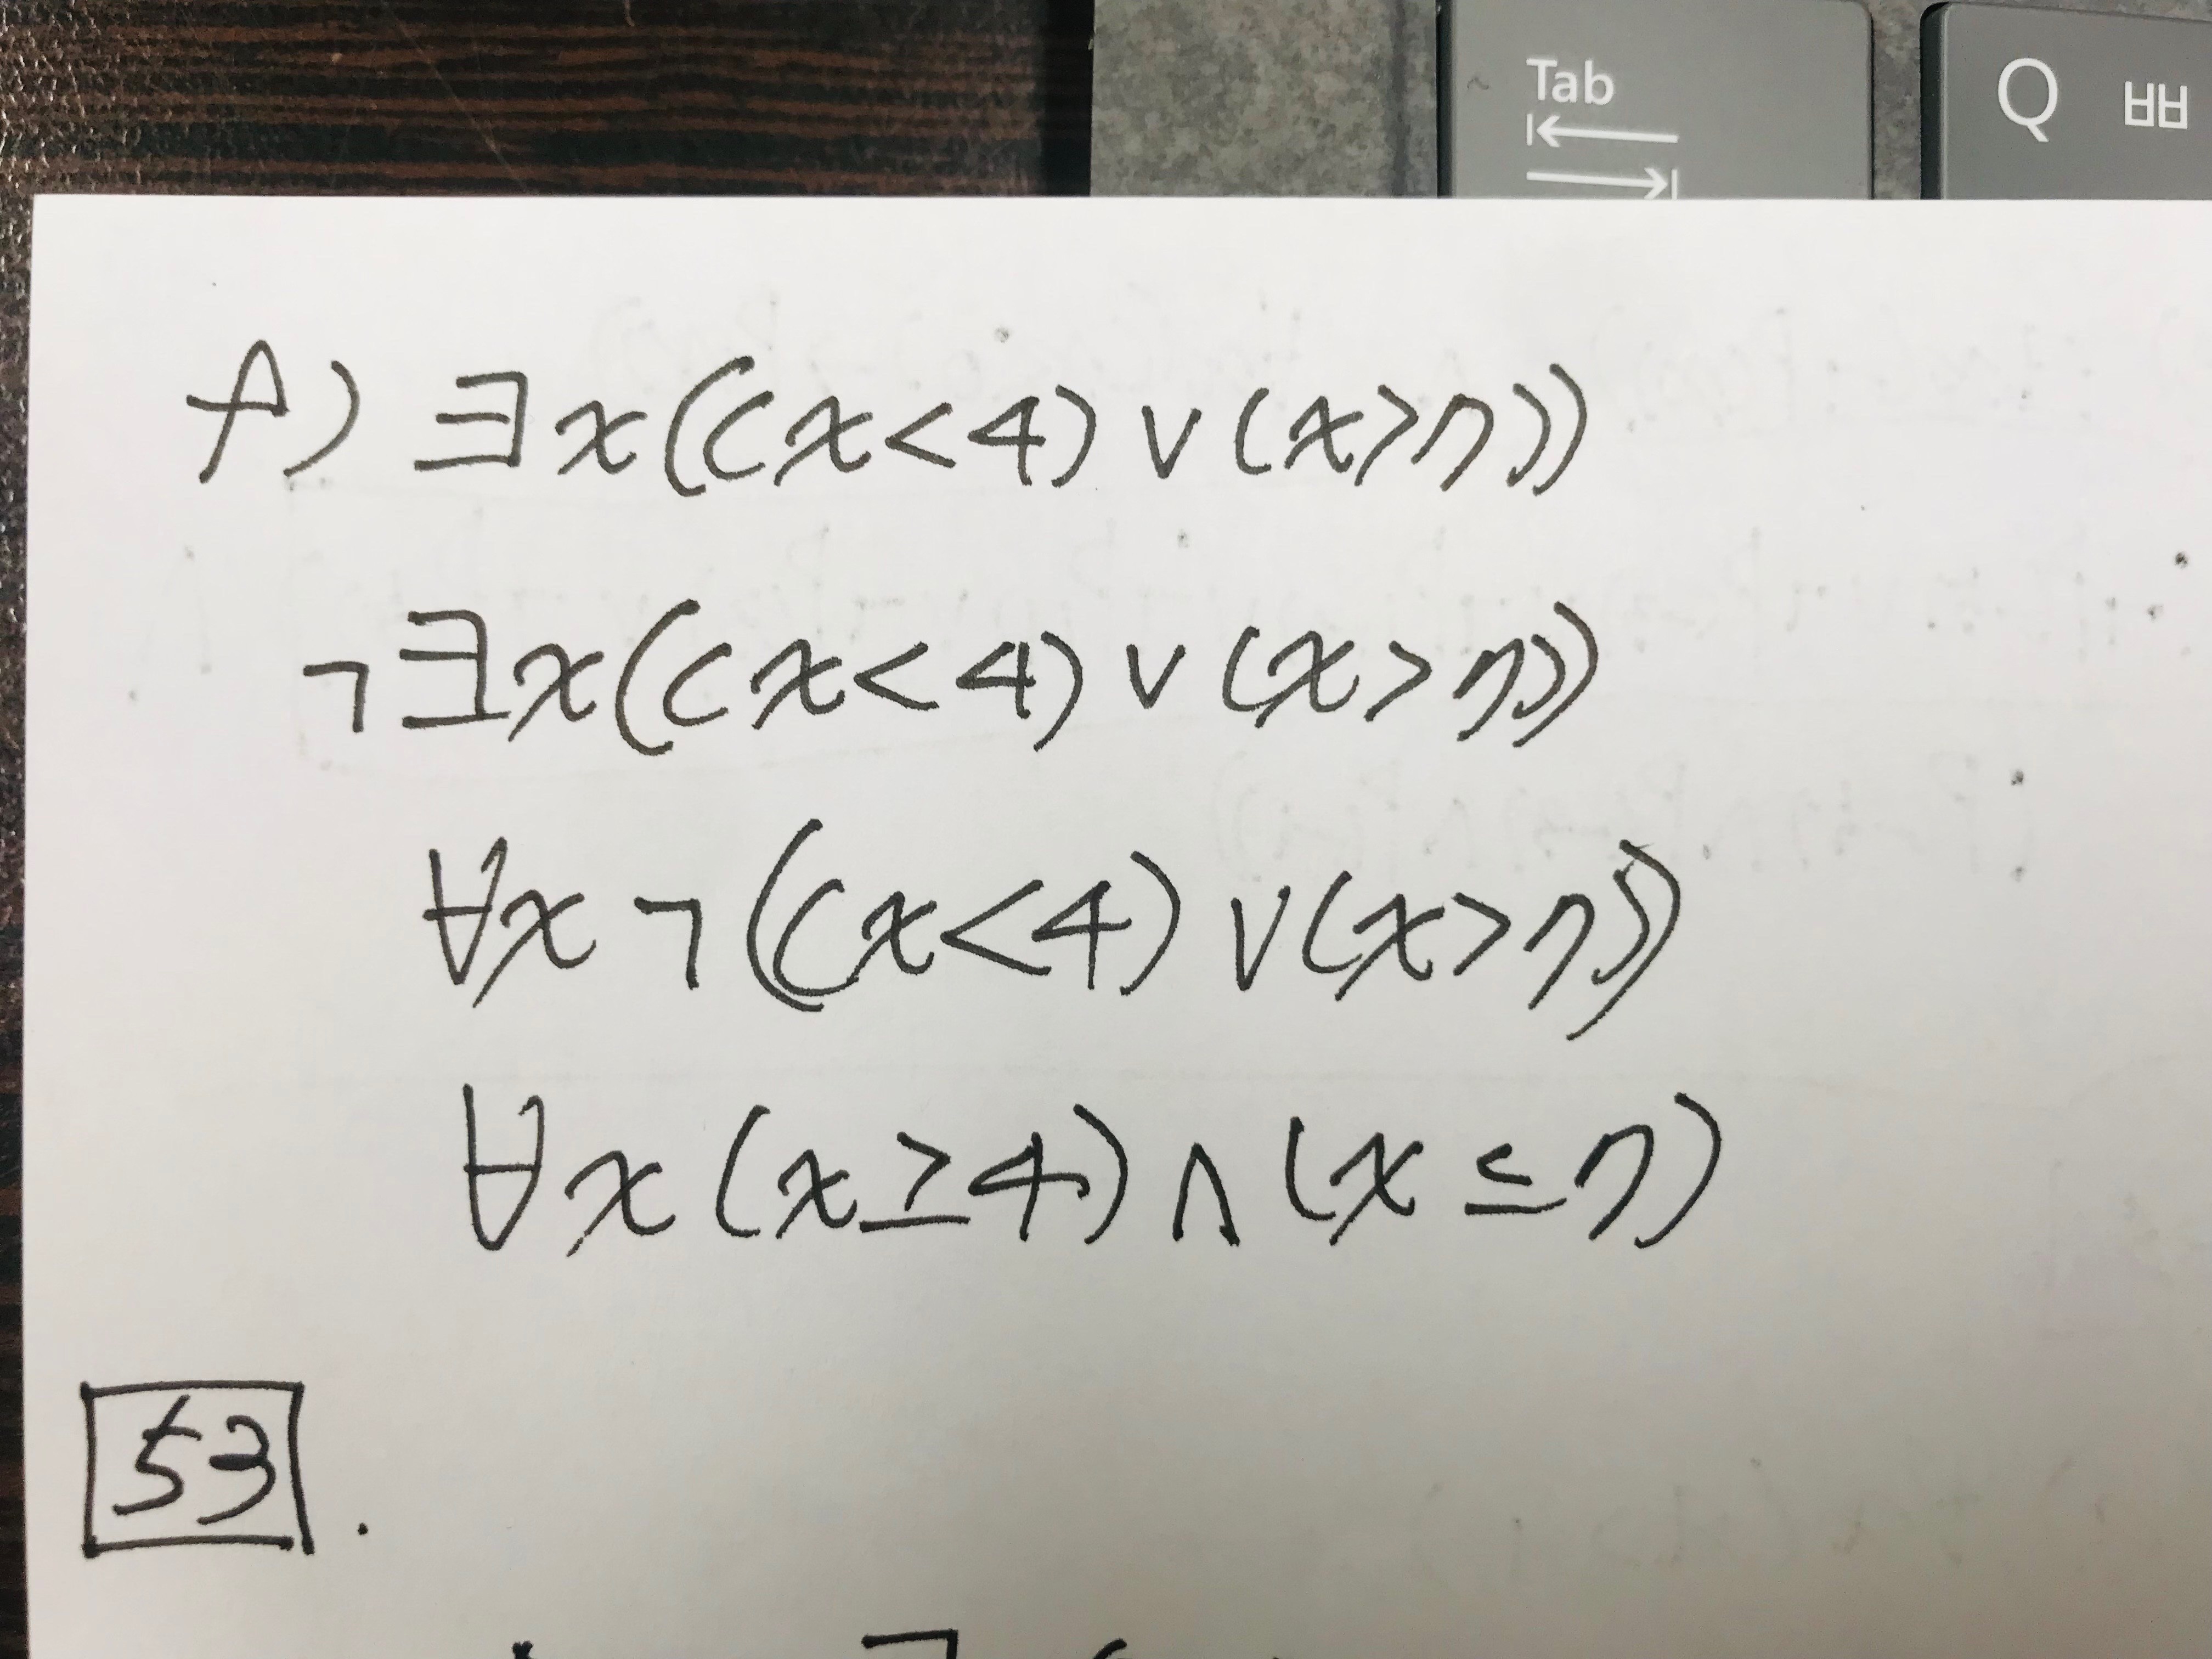 Tab
Q ㅃ
f) ∃x((x<4) ∨ (x>7))
¬∃x((x<4) ∨ (x>7))
∀x ¬((x<4) ∨ (x>7))
∀x (x≥4) ∧ (x≤7)
53.